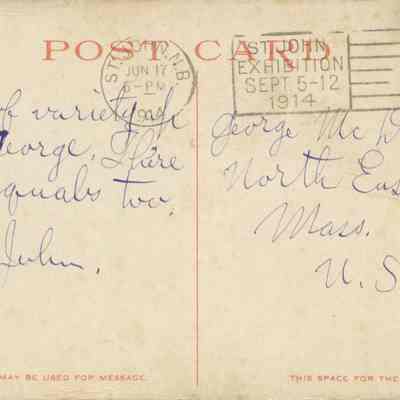 POST CARD
ST. JOHN, N.B
JUN 17
6-PM
1914
ST. JOHN,
EXHIBITION
SEPT 5-12
1914
of variety
George. I
equals too.
John.
George Mc D
North Eas
Mass.
U. S
MAY BE USED FOR MESSAGE.
THIS SPACE FOR THE